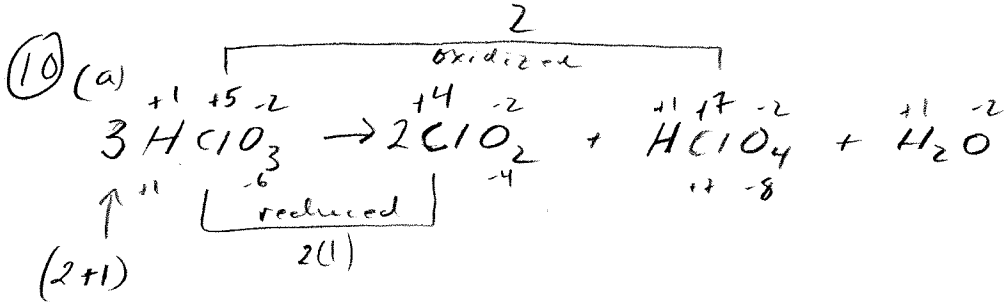 2
oxidized
10 (a)
+1 +5 -2 +4 -2 +1 +7 -2 +1 -2
3 HClO3 → 2ClO2 + HClO4 + H2O
+1 -6 -4 +7 -8
reduced
2(1)
(2+1)